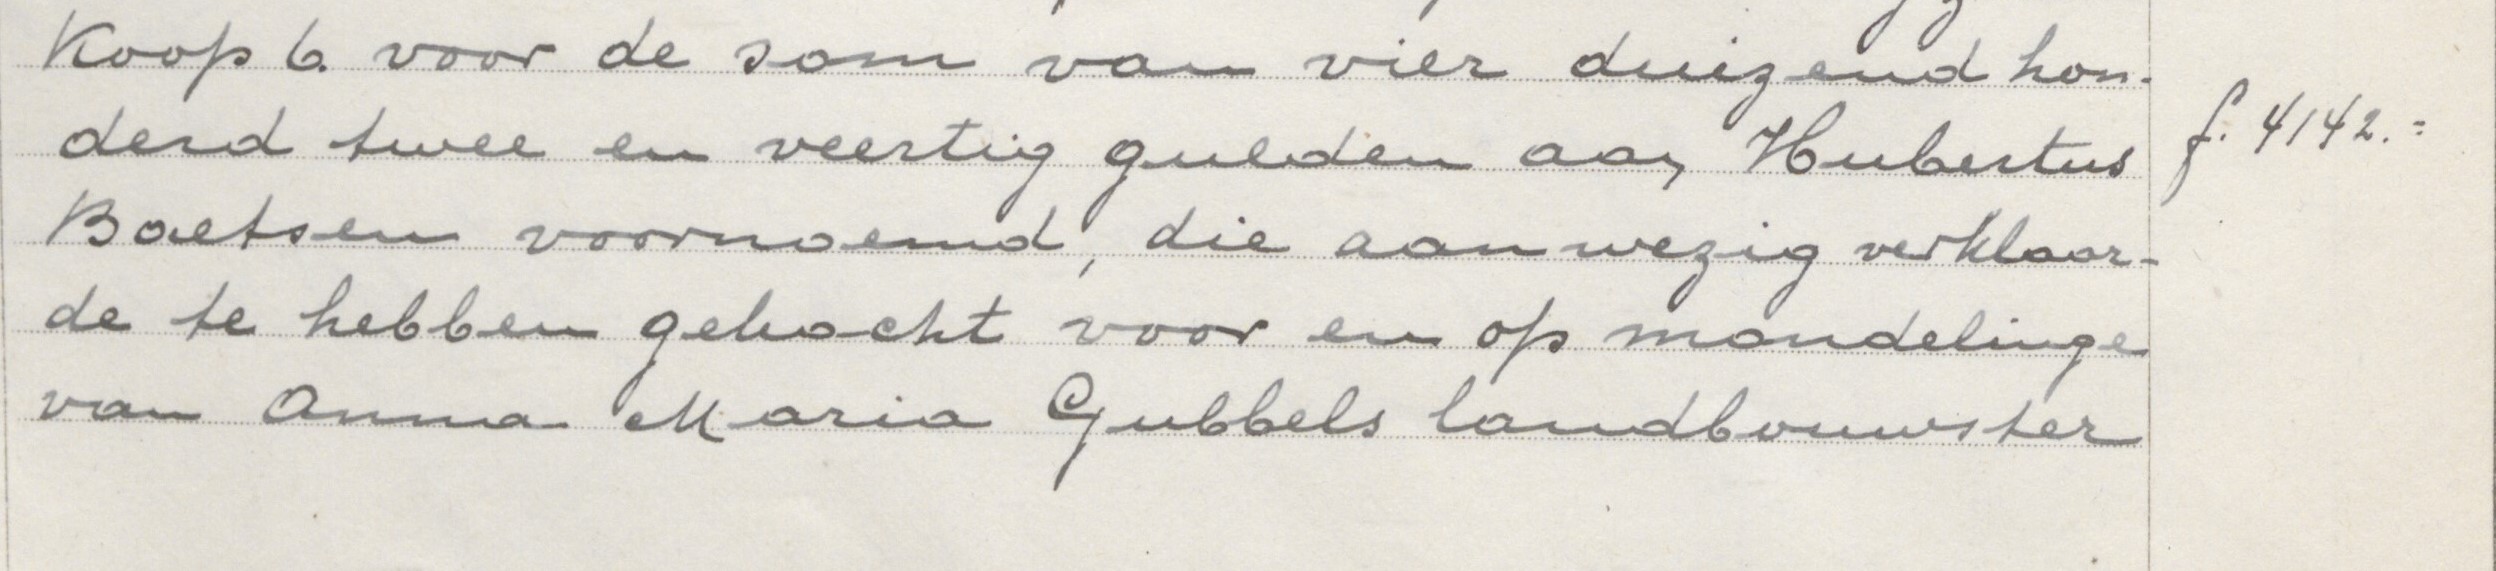 Koop 6. voor de som van vier duizend hon-
derd twee en veertig gulden aan Hubertus
f. 4142.=
Baetsen voornoemd, die aanwezig verklaar-
de te hebben gekocht voor en op mondelinge
van Anna Maria Gubbels landbouwster